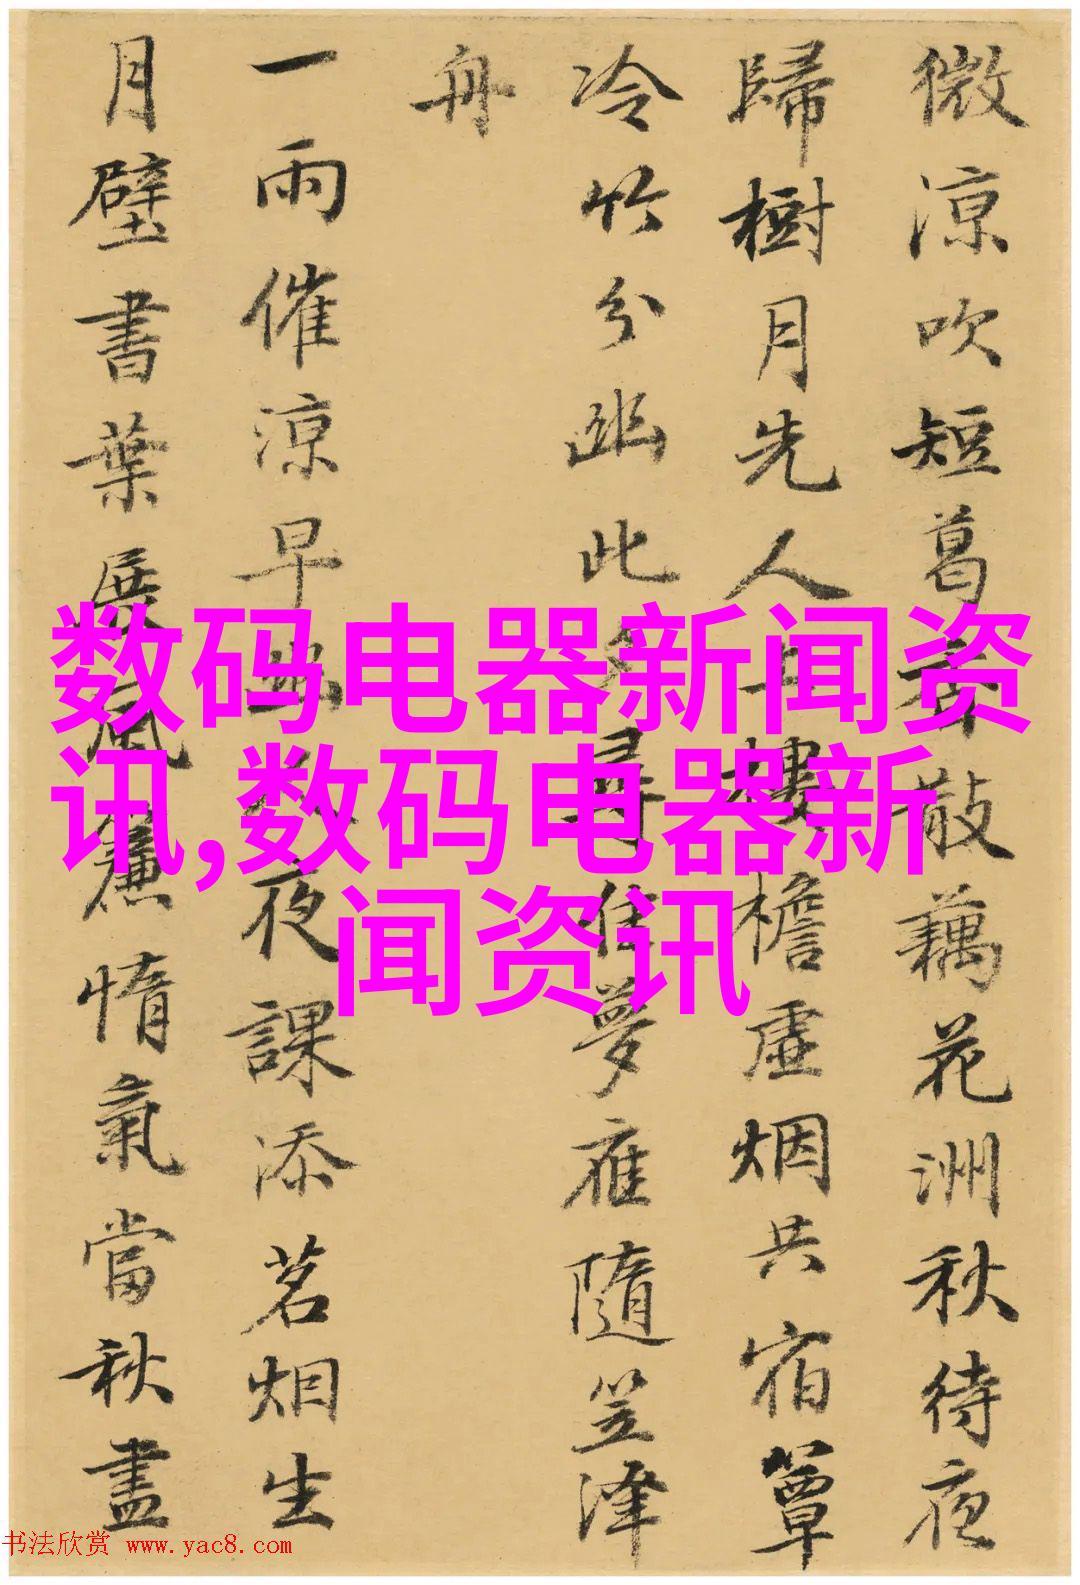 微涼吹短葛散藕花洲秋待夜
歸樹月先人上樓檐虛烟共宿簟
冷竹分幽此夕尋佳夢應隨笠澤
舟
一雨催涼早幽人夜課添茗烟生
月壁書葉展風簾惰氣當秋盡
数码电器新闻资
讯,数码电器新
闻资讯
书法欣赏 www.yac8.com